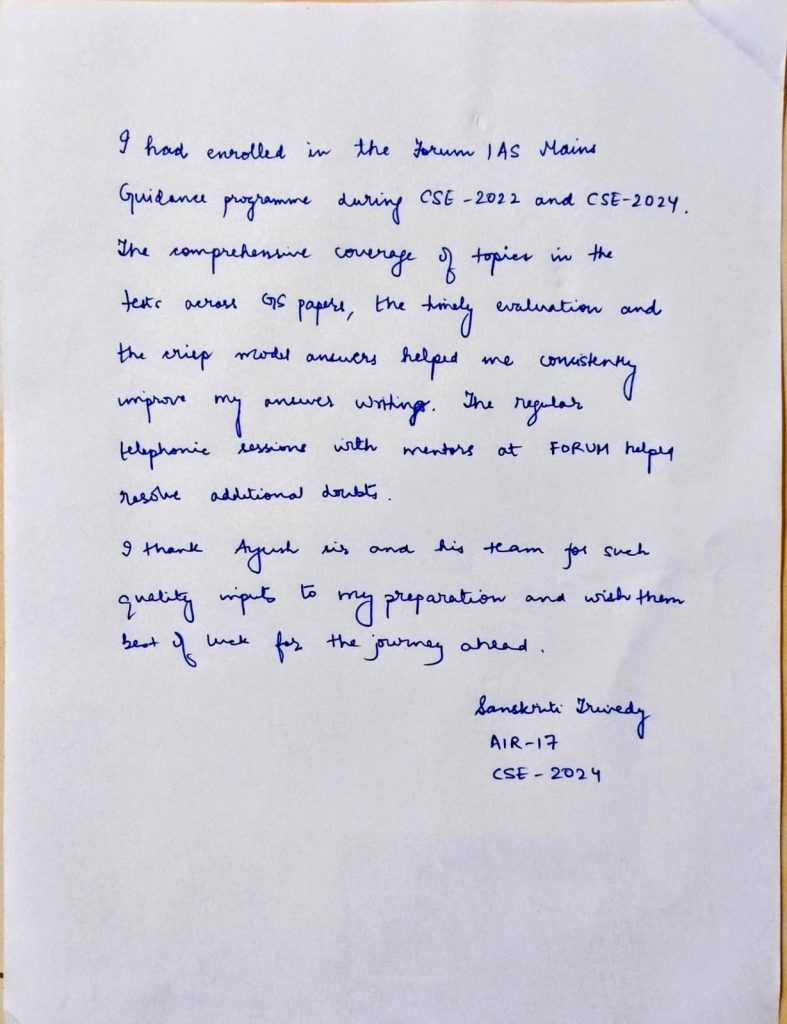 I had enrolled in the Forum IAS Mains
Guidance programme during CSE-2022 and CSE-2024.
The comprehensive coverage of topics in the
tests across GS papers, the timely evaluation and
the crisp model answers helped me consistently
improve my answer writing. The regular
telephonic sessions with mentors at FORUM helped
resolve additional doubts.
I thank Ayush sir and his team for such
quality inputs to my preparation and wish them
best of luck for the journey ahead.
Sanskriti Trivedy
AIR-17
CSE-2024